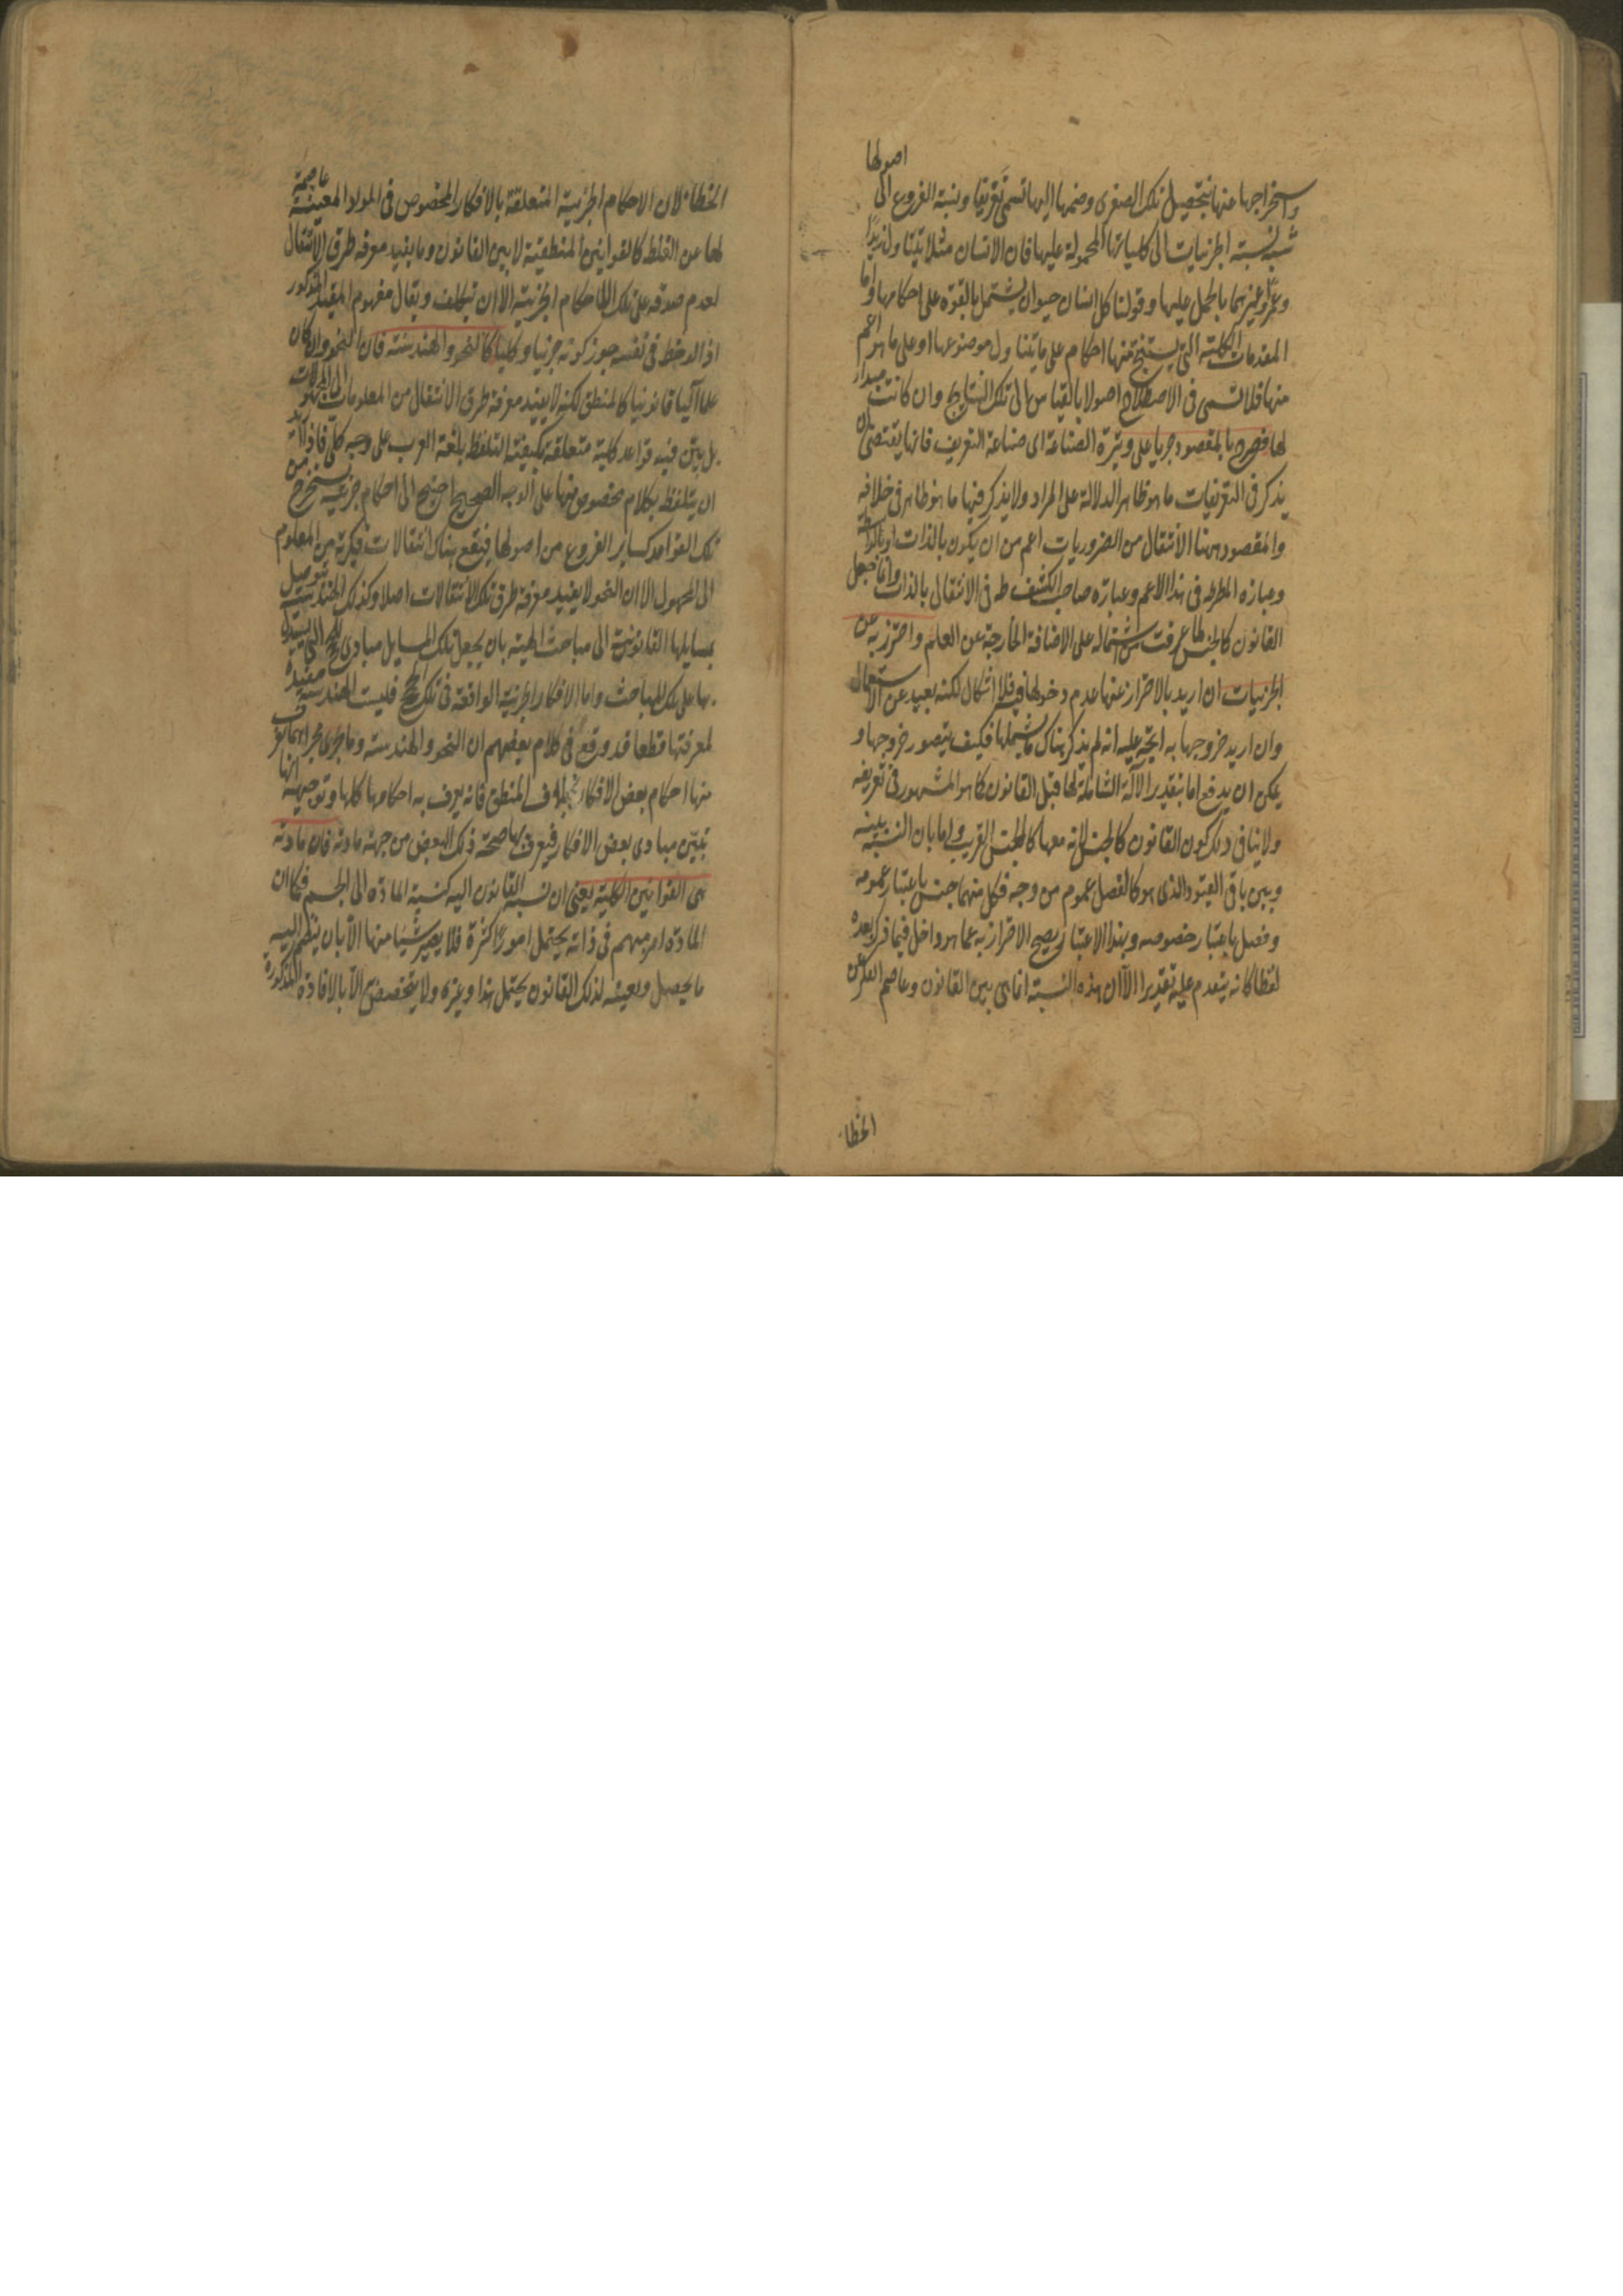 واستخراجها منها بتحصيل تلك الصغرى وضمها اليها تسمى تفريعا ونسبة الفروع الى اصولها
شبه نسبة الجزئيات الى كلياتها المحمولة عليها فان الانسان مثلا يتناول زيدا
وعمرو وغيرهما بالحمل عليها وقولنا كل انسان حيوان يشتمل بالقوة على احكامها واما
المقدمات الكلية التى يستنتج منها احكام على ما يتناول موضوعها او على ما هو اعم
منها فلا تسمى فى الاصطلاح اصولا بالقياس الى تلك النتايج وان كانت مبدأ
لها فصرح بالمقصود جريا على وتيرة الصناعة اى صناعة التعريف فانها يقتضى ان
يذكر فى التعريفات ما هو ظاهر الدلالة على المراد ولا يذكر فيها ما هو ظاهر فى خلافه
والمقصود ههنا الانتقال من الضروريات اعم من ان يكون بالذات او بالواسطة
وعبارة المط فى هذا الاعم وعبارة صاحب الكشف ظه فى الانتقال بالذات وانما جعل
القانون كالجنس لما عرفت من اشتماله على الاضافة الخارجة عن العلم واحترز به عن
الجزئيات ان اريد بالاحتراز عنها عدم دخولها فيه فلا اشكال لكنه بعيد عن الاستعمال
وان اريد خروجها به اتجه عليه انه لم يذكر هناك ما يشملها فكيف يتصور خروجها و
يمكن ان يدفع اما بتقدير الآلة الشاملة لها قبل القانون كما هو المشهور فى تعريفه
ولا ينافى ذلك كون القانون كالجنس لانه معها كالجنس القريب واما بان النسبة بينه
وبين باقى القيود الذى هو كالفصل عموم من وجه فكل منهما جنس باعتبار عمومه
وفصل باعتبار خصوصه وبهذا الاعتبار يصح الاحتراز به عما هو داخل فيما ذكر بعده
لفظا كانه يتقدم عليه تقديرا الا ان هذه النسبة انما هى بين القانون وعاصم الفكر عن
الخطاء
الخطاء لان الاحكام الجزئية المتعلقة بالافكار المخصوص فى المواد المعينة عاصمة
لها عن الغلط كالقوانين المنطقية لا بين القانون وما يفيد معرفة طرق الانتقال
لعدم صدقه على تلك الاحكام الجزئية الا ان يتكلف ويقال مفهوم المقيد المذكور
اذا لوحظ فى نفسه جوز كونه جزئيا وكليا كالنحو والهندسة فان النحو وان كان
علما آليا قانونيا كالمنطق لكنه لا يفيد معرفة طرق الانتقال من المعلومات الى المجهولات
بل يبين فيه قواعد كلية متعلقة بكيفية التلفظ بلغة العرب على وجه كلى فاذا اريد
ان يتلفظ بكلام مخصوص منها على الوجه الصحيح احتيج الى احكام جزئية يستخرج من
تلك القواعد كساير الفروع من اصولها فيقع هناك انتقالات فكرية من المعلوم
الى المجهول الا ان النحو لا يفيد معرفة طرق تلك الانتقالات اصلا وكذلك الهندسة يتوصل
بمسايلها القانونية الى مباحث الهيئة بان يجعل تلك المسايل مبادى الحجج التى يستدل
بها على تلك المباحث واما الافكار الجزئية الواقعة فى تلك الحجج فليست الهندسة مفيدة
لمعرفتها قطعا قد وقع فى كلام بعضهم ان النحو والهندسة وما جرى مجراهما يعرف
منها احكام بعض الافكار بخلاف المنطق فانه يعرف به احكامها كلها وتوجيهه انها
تبين مبادى بعض الافكار فيعرف بها صحة ذلك البعض من جهة مادته فان مادته
هى القوانين الكلية يعنى ان نسبة القانون اليه كنسبة المادة الى الجسم فكما ان
المادة امر مبهم فى ذاته يحتمل امورا كثيرة فلا يصير شيئا منها الا بان ينضم اليه
ما يحصله ويعينه كذلك القانون يحتمل هذا وغيره ولا يتخصص الا بالافادة المذكورة